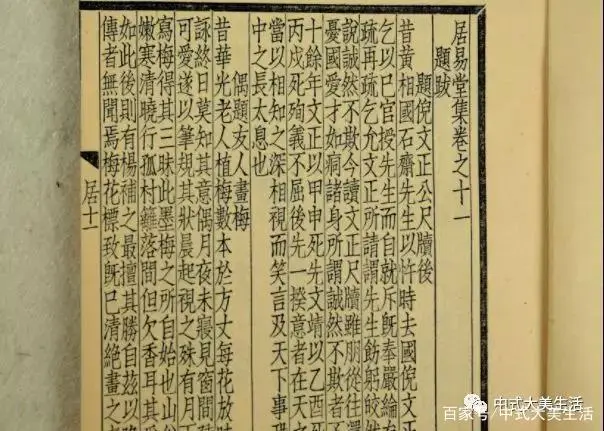 居易堂集卷之十一
題跋
題倪文正公尺牘後
昔黃相國石齋先生以忤時去國倪文正
乞以巳官授先生而自就斥旣奉嚴綸
疏再疏乞允文正所請謂先生飭躬皎然
說誠然不欺今讀文正尺牘雖朋從往
憂國愛才如痌諸身所謂誠然不欺者不
十餘年文正以甲申死先文靖以乙酉死
丙戌死殉義不屈後先一揆意者在天之
當以相知之深相視而笑言及天下事
中之長太息也
偶題友人畫梅
昔華光老人植梅數本於方丈每花放時
詠終日莫知其意偶月夜未寢見窗間
可愛遂以筆規其狀晨起視之殊有月
寫梅得其三昧此墨梅之所自始也山
嫩寒清曉行孤村籬落間但欠香耳其
如此後則有楊補之最擅其勝自茲以
傳者無聞焉梅花標致旣已清絕畫之
居十一
中式大美生活
百家号/中式大美生活